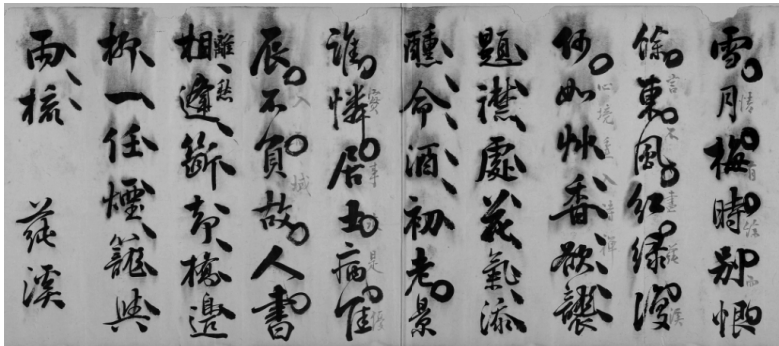 雪月梅時別恨
餘東風紅綠漫
何如艸香欲讓
題襟處花氣添
醺命酒初老景
誰憐居士病佳
辰不負故人書
離愁
相逢斷却橋邊
柳一任煙籠與
雨梳
溪